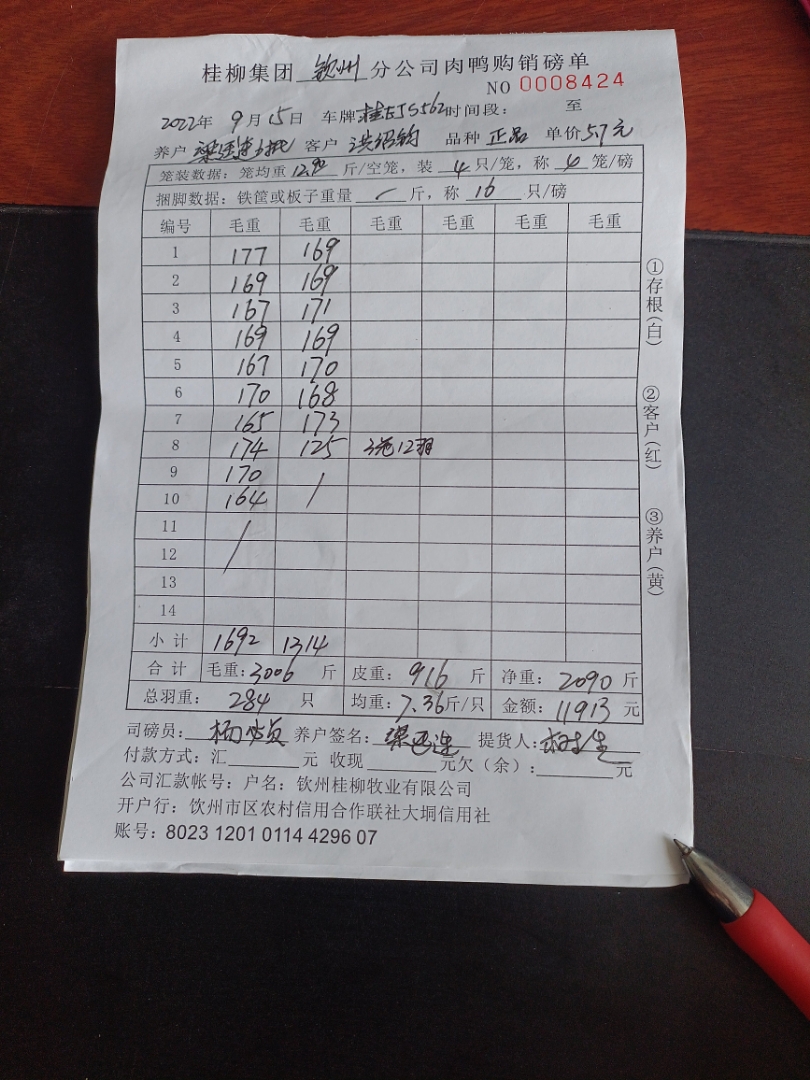 桂柳集团 钦州 分公司肉鸭购销磅单
NO 0008424
2022年 9月15日 车牌桂EJS562时间段： 至
养户 客户 洪绍钧 品种 正品 单价5.7元
笼装数据：笼均重12.90斤/空笼，装 4 只/笼，称 4 笼/磅
捆脚数据：铁筐或板子重量 / 斤，称 16 只/磅
编号 毛重 毛重 毛重 毛重 毛重 毛重
1 177 169
2 169 169
3 167 171
4 169 169
5 167 170
6 170 168
7 165 173
8 174 125 3笼12羽
9 170 /
10 164
11 /
12
13
14
小计 1692 1314
合计 毛重：3006 斤 皮重：916 斤 净重：2090 斤
总羽重： 284 只 均重：7.36斤/只 金额：11913 元
司磅员： 养户签名： 提货人：
付款方式：汇 元 收现 元欠（余）： 元
公司汇款帐号：户名：钦州桂柳牧业有限公司
开户行：钦州市区农村信用合作联社大垌信用社
账号：8023 1201 0114 4296 07
①存根（白）
②客户（红）
③养户（黄）